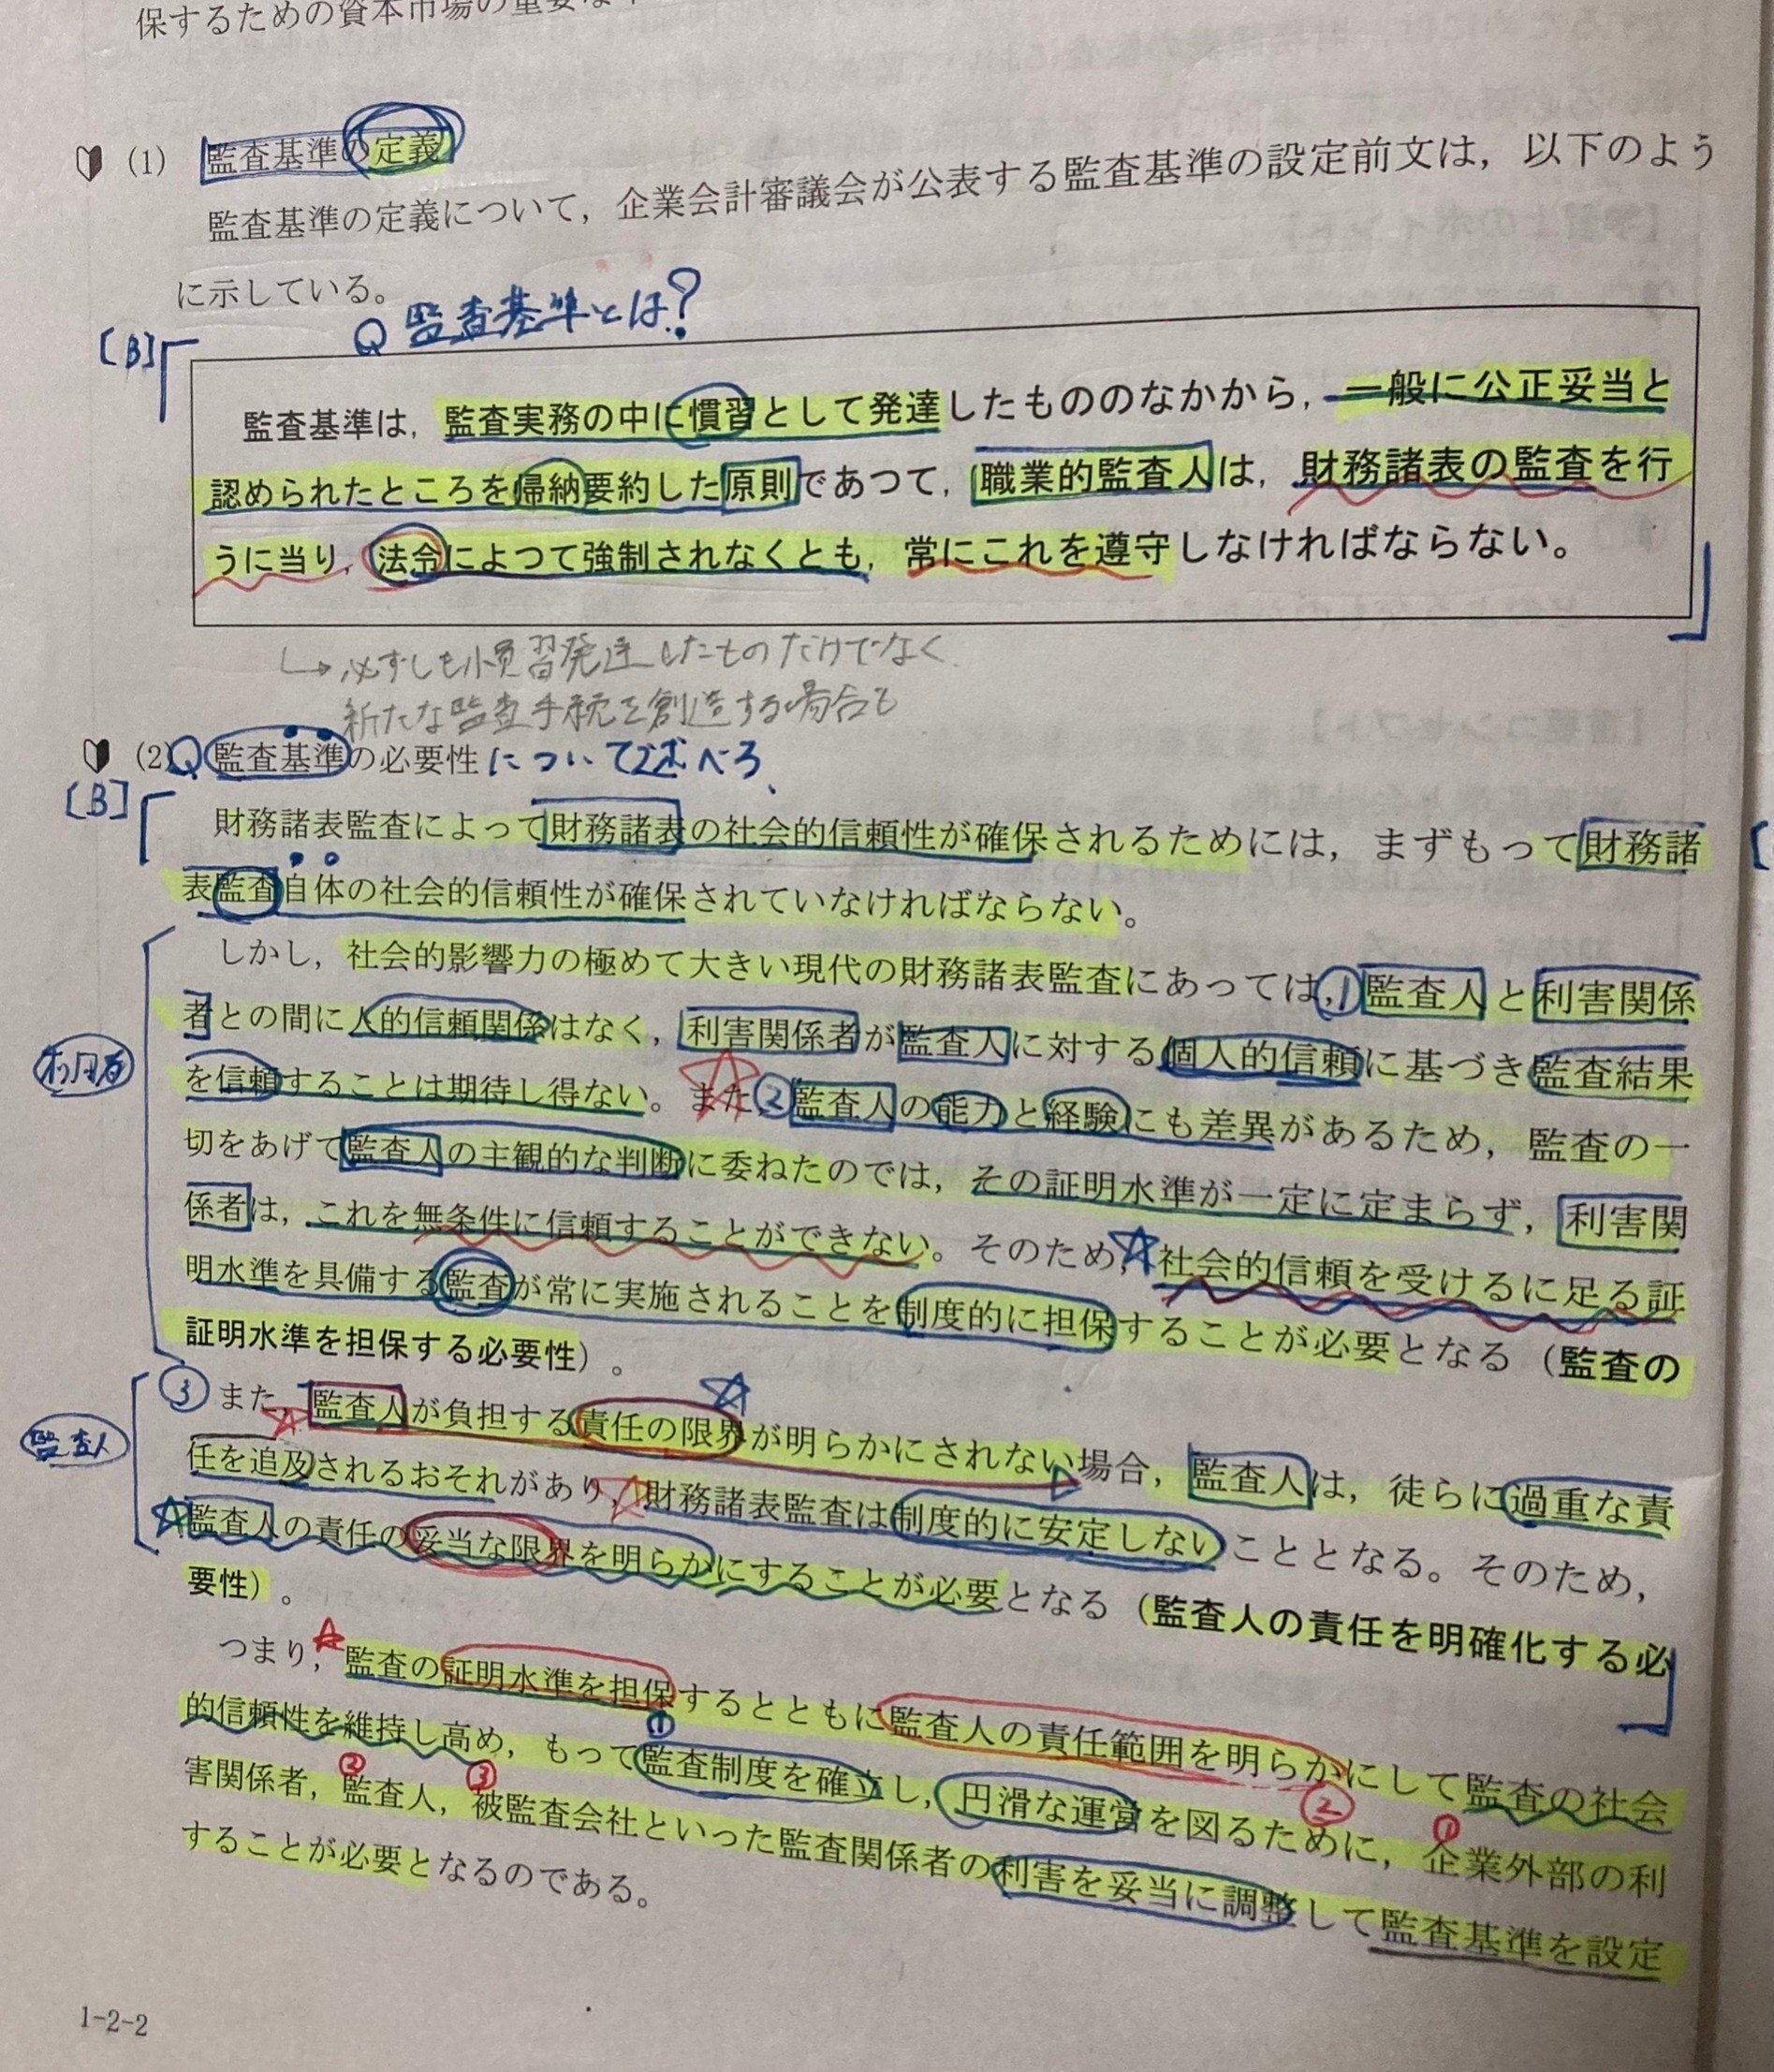 保するための資本市場の重要な
(1) 監査基準の定義
監査基準の定義について，企業会計審議会が公表する監査基準の設定前文は，以下のよう
に示している。
Q 監査基準とは?
[B]
監査基準は，監査実務の中に慣習として発達したもののなかから，一般に公正妥当と
認められたところを帰納要約した原則であつて，職業的監査人は，財務諸表の監査を行
うに当り，法令によつて強制されなくとも，常にこれを遵守しなければならない。
→必ずしも慣習発達したものだけでなく
新たな監査手続を創造する場合も
(2) Q 監査基準の必要性について述べろ
[B]
財務諸表監査によって財務諸表の社会的信頼性が確保されるためには，まずもって財務諸
表監査自体の社会的信頼性が確保されていなければならない。
しかし，社会的影響力の極めて大きい現代の財務諸表監査にあっては，①監査人と利害関係
者との間に人的信頼関係はなく，利害関係者が監査人に対する個人的信頼に基づき監査結果
利用者
を信頼することは期待し得ない。また，②監査人の能力と経験にも差異があるため，監査の一
切をあげて監査人の主観的な判断に委ねたのでは，その証明水準が一定に定まらず，利害関
係者は，これを無条件に信頼することができない。そのため，☆社会的信頼を受けるに足る証
明水準を具備する監査が常に実施されることを制度的に担保することが必要となる（監査の
証明水準を担保する必要性）。
③また，監査人が負担する責任の限界が明らかにされない場合，監査人は，徒らに過重な責
監査人
任を追及されるおそれがあり，☆財務諸表監査は制度的に安定しないこととなる。そのため，
☆監査人の責任の妥当な限界を明らかにすることが必要となる（監査人の責任を明確化する必
要性）。
つまり，☆監査の証明水準を担保するとともに監査人の責任範囲を明らかにして監査の社会
① ②
的信頼性を維持し高め，もって監査制度を確立し，円滑な運営を図るために，①企業外部の利
害関係者，②監査人，③被監査会社といった監査関係者の利害を妥当に調整して監査基準を設定
することが必要となるのである。
1-2-2